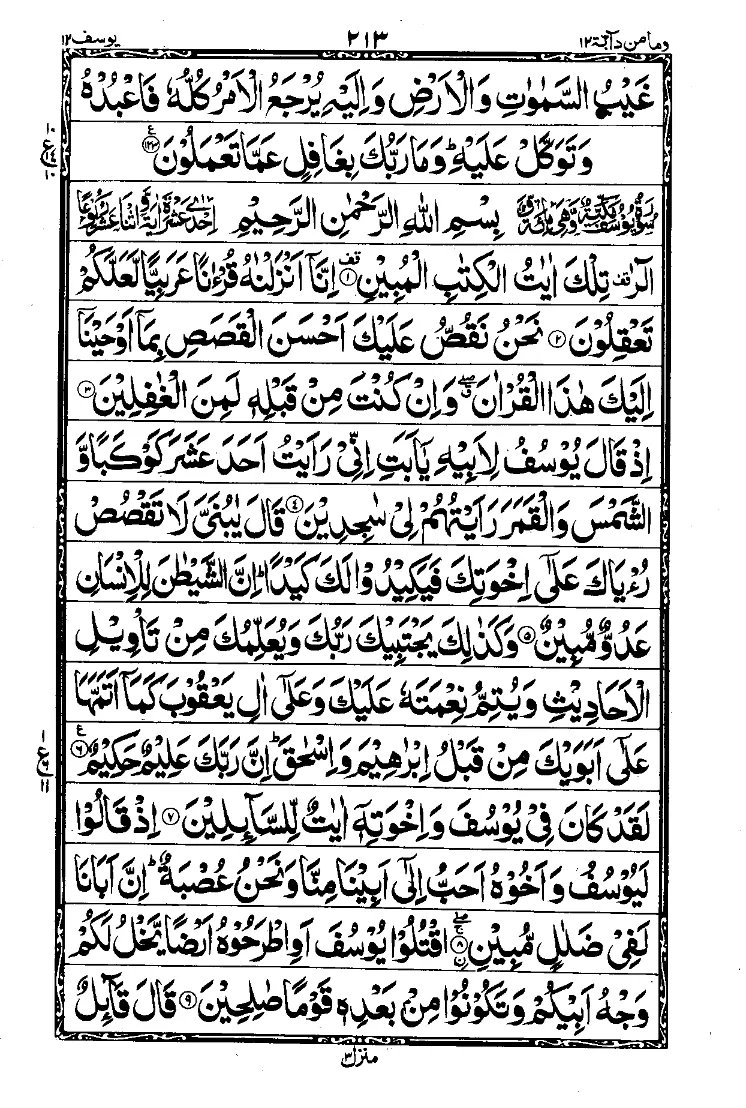 وما من دآبة ١٢ ٢١٣ يوسف ١٢
غَيْبُ السَّمٰوٰتِ وَالْاَرْضِ وَاِلَيْهِ يُرْجَعُ الْاَمْرُ كُلُّهٗ فَاعْبُدْهُ
وَتَوَكَّلْ عَلَيْهِ ؕ وَمَا رَبُّكَ بِغَافِلٍ عَمَّا تَعْمَلُوْنَ ﴿۱۲۳﴾ ع
سُوْرَةُ يُوْسُفَ مَكِّيَّةٌ وَّهِيَ مِائَةٌ وَّ بِسْمِ اللّٰهِ الرَّحْمٰنِ الرَّحِيْمِ اِحْدٰى عَشْرَةَ اٰيَةً وَّ اثْنَا عَشَرَ رُكُوْعًا
الٓرٰ ۟ تِلْكَ اٰيٰتُ الْكِتٰبِ الْمُبِيْنِ ﴿۱﴾ اِنَّاۤ اَنْزَلْنٰهُ قُرْءٰنًا عَرَبِيًّا لَّعَلَّكُمْ
تَعْقِلُوْنَ ﴿۲﴾ نَحْنُ نَقُصُّ عَلَيْكَ اَحْسَنَ الْقَصَصِ بِمَاۤ اَوْحَيْنَاۤ
اِلَيْكَ هٰذَا الْقُرْاٰنَ ۖ وَاِنْ كُنْتَ مِنْ قَبْلِهٖ لَمِنَ الْغٰفِلِيْنَ ﴿۳﴾
اِذْ قَالَ يُوْسُفُ لِاَبِيْهِ يٰۤاَبَتِ اِنِّيْ رَاَيْتُ اَحَدَ عَشَرَ كَوْكَبًا وَّ
الشَّمْسَ وَالْقَمَرَ رَاَيْتُهُمْ لِيْ سٰجِدِيْنَ ﴿۴﴾ قَالَ يٰبُنَيَّ لَا تَقْصُصْ
رُءْيَاكَ عَلٰۤى اِخْوَتِكَ فَيَكِيْدُوْا لَكَ كَيْدًا ؕ اِنَّ الشَّيْطٰنَ لِلْاِنْسَانِ
عَدُوٌّ مُّبِيْنٌ ﴿۵﴾ وَكَذٰلِكَ يَجْتَبِيْكَ رَبُّكَ وَيُعَلِّمُكَ مِنْ تَاْوِيْلِ
الْاَحَادِيْثِ وَيُتِمُّ نِعْمَتَهٗ عَلَيْكَ وَعَلٰۤى اٰلِ يَعْقُوْبَ كَمَاۤ اَتَمَّهَا
عَلٰۤى اَبَوَيْكَ مِنْ قَبْلُ اِبْرٰهِيْمَ وَاِسْحٰقَ ؕ اِنَّ رَبَّكَ عَلِيْمٌ حَكِيْمٌ ﴿۶﴾ ع
لَقَدْ كَانَ فِيْ يُوْسُفَ وَاِخْوَتِهٖۤ اٰيٰتٌ لِّلسَّآئِلِيْنَ ﴿۷﴾ اِذْ قَالُوْا
لَيُوْسُفُ وَاَخُوْهُ اَحَبُّ اِلٰۤى اَبِيْنَا مِنَّا وَنَحْنُ عُصْبَةٌ ؕ اِنَّ اَبَانَا
لَفِيْ ضَلٰلٍ مُّبِيْنِ ﴿۸﴾ اقْتُلُوْا يُوْسُفَ اَوِ اطْرَحُوْهُ اَرْضًا يَّخْلُ لَكُمْ
وَجْهُ اَبِيْكُمْ وَتَكُوْنُوْا مِنْۢ بَعْدِهٖ قَوْمًا صٰلِحِيْنَ ﴿۹﴾ قَالَ قَآئِلٌ
منزل ٣